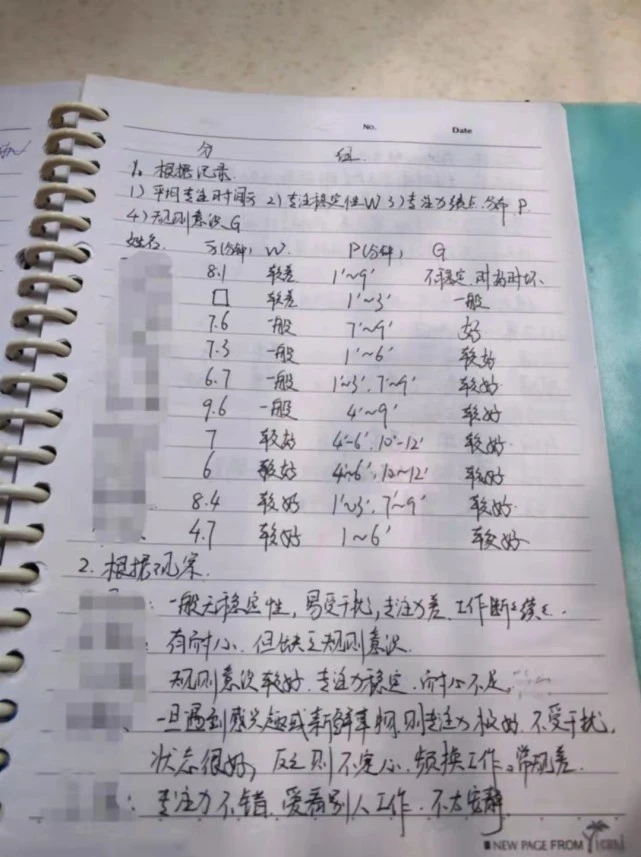 No. Date
分 位
1. 根据记录.
1) 平均专注时间 2) 专注稳定性W 3) 专注力结点分布P.
4) 规则意识G
姓名 (分钟) W. P(分钟) G
8.1 较差 1'~9' 不稳定.时好时坏.
□ 较差 1'~3' 一般
7.6 一般 7'~9' 好
7.3 一般 1'~6' 较好
6.7 一般 1'~3'.7'~9' 较好
9.6 一般 4'~9' 较好
7 较好 4'-6',10'-12' 较好.
6 较好 4'~6',10~12' 较好
8.4 较好 1'~3',7'~9' 较好.
4.7 较好 1~6' 较好
2. 根据观察.
: 一般无稳定性,易受干扰,专注力差.工作断断续续.
: 有耐心.但缺乏规则意识.
规则意识较好.专注力稳定.耐心不足.
、一旦遇到感兴趣或新鲜事物,则专注力极好.不受干扰.
状态很好,反之则不定心.频换工作。常规差.
: 专注力不错.爱看别人工作.不太安静
NEW PAGE FROM